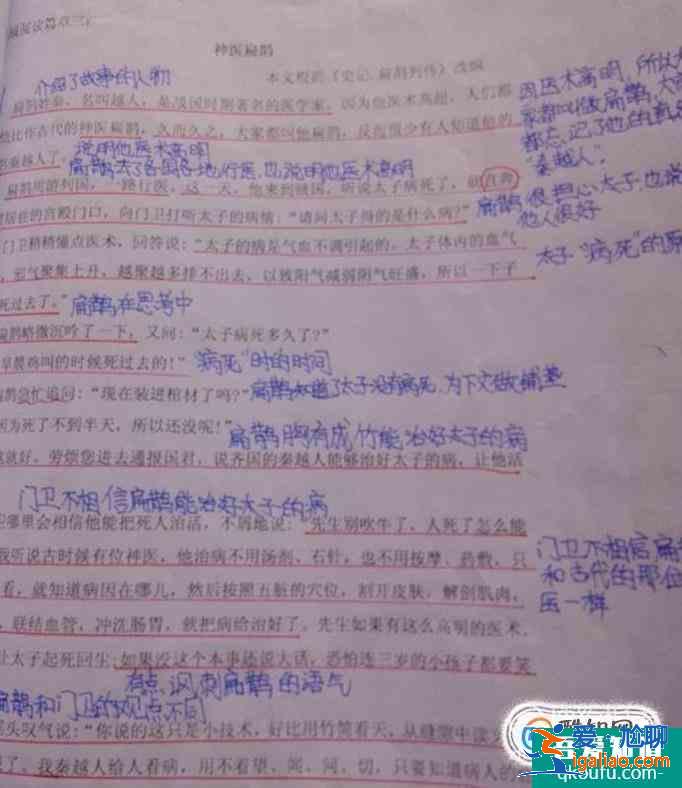 神医扁鹊
本文根据《史记·扁鹊列传》改编
介绍了故事人物
扁鹊姓秦，名叫越人，是战国时期著名的医学家，因为他医术高超，人们都
他比作古代的神医扁鹊，久而久之，大家都叫他扁鹊，反而很少有人知道他的
秦越人了。
说明他医术高明
因医术高明，所以大
家都叫做扁鹊，大
都忘记了他的真
"秦越人"
扁鹊去了各国各地行医，也说明他医术高明
扁鹊周游列国，一路行医，这一天，他来到虢国，听说太子病死了，就直奔
居住的宫殿门口，向门卫打听太子的病情："请问太子得的是什么病？"
扁鹊很担心太子，也说
他人很好
门卫稍稍懂点医术，回答说："太子的病是气血不调引起的，太子体内的血气
，邪气聚集上升，越聚越多排不出去，以致阳气减弱阴气旺盛，所以一下子
死过去了。"
太子"病死"的原
扁鹊在思考中
扁鹊略微沉吟了一下，又问："太子病死多久了？"
早晨鸡叫的时候死过去的！"
"病死"时的时间
扁鹊急忙追问："现在装进棺材了吗？"
扁鹊知道了太子没有病死，为下文做铺垫
因为死了不到半天，所以还没呢！"
扁鹊胸有成竹能治好太子的病
就好，劳烦您进去通报国君，说齐国的秦越人能够治好太子的病，让他活
门卫不相信扁鹊能治好太子的病
哪里会相信他能把死人治活，不屑地说："先生别吹牛了，人死了怎么能
我听说古时候有位神医，他治病不用汤剂、石针，也不用按摩、药敷，只
看，就知道病因在哪儿，然后按照五脏的穴位，割开皮肤，解剖肌肉，
，联结血管，冲洗肠胃，就把病给治好了。先生如果有这么高明的医术，
让太子起死回生；如果没这个本事还说大话，恐怕连三岁的小孩子都要笑
门卫不相信扁
和古代的那位
医一样
有点讽刺扁鹊的语气
扁鹊和门卫的观点不同
头叹气说："你说的这只是小技术，好比用竹管看天，从缝隙中读
了。我秦越人给人看病，用不着望、闻、问、切，只要知道病人的
酷知网
爱尬聊
igaliao.com
qkoufu.com